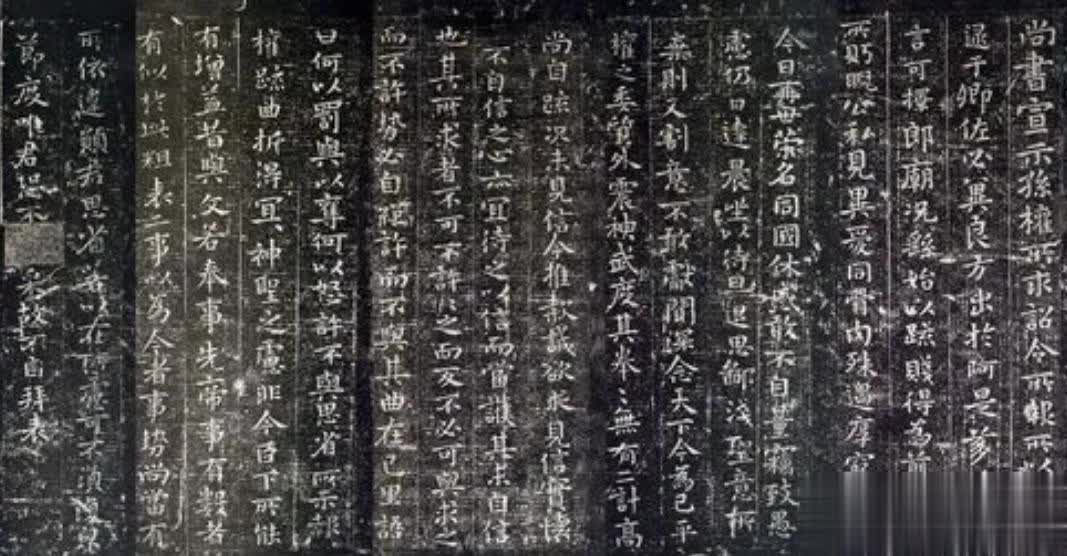 尚書宣示孫權所求詔令所報所以
逮于卿佐必冀良方出於阿是芻
言可擇郎廟況繇始以疏賤得為前
所眄睨公私見異愛同骨肉殊遇厚寵
今日再世榮名同國休慼敢不自量竊致愚
慮仍日達晨坐以待旦退思鄙淺聖意所
棄則又割意不敢獻聞深念天下今為已平
權之委質外震神武度其拳〻無有二計高
尚自疏況未見信今推款誠欲求見信實懷
不自信之心亦宜待之以信而當護其未自信
也其所求者不可不許〻之而反不必可與求之
而不許勢必自絕許而不與其曲在己里語
曰何以罰與以奪何以怒許不與思省所示報
權疏曲折得宜神聖之慮非今臣下所能
有增益昔與文若奉事先帝事有數者
有似於此粗表二事以為今者事勢尚當有
所依違願君思省若以在所慮可不須復
節度唯君恐不采故不自拜表